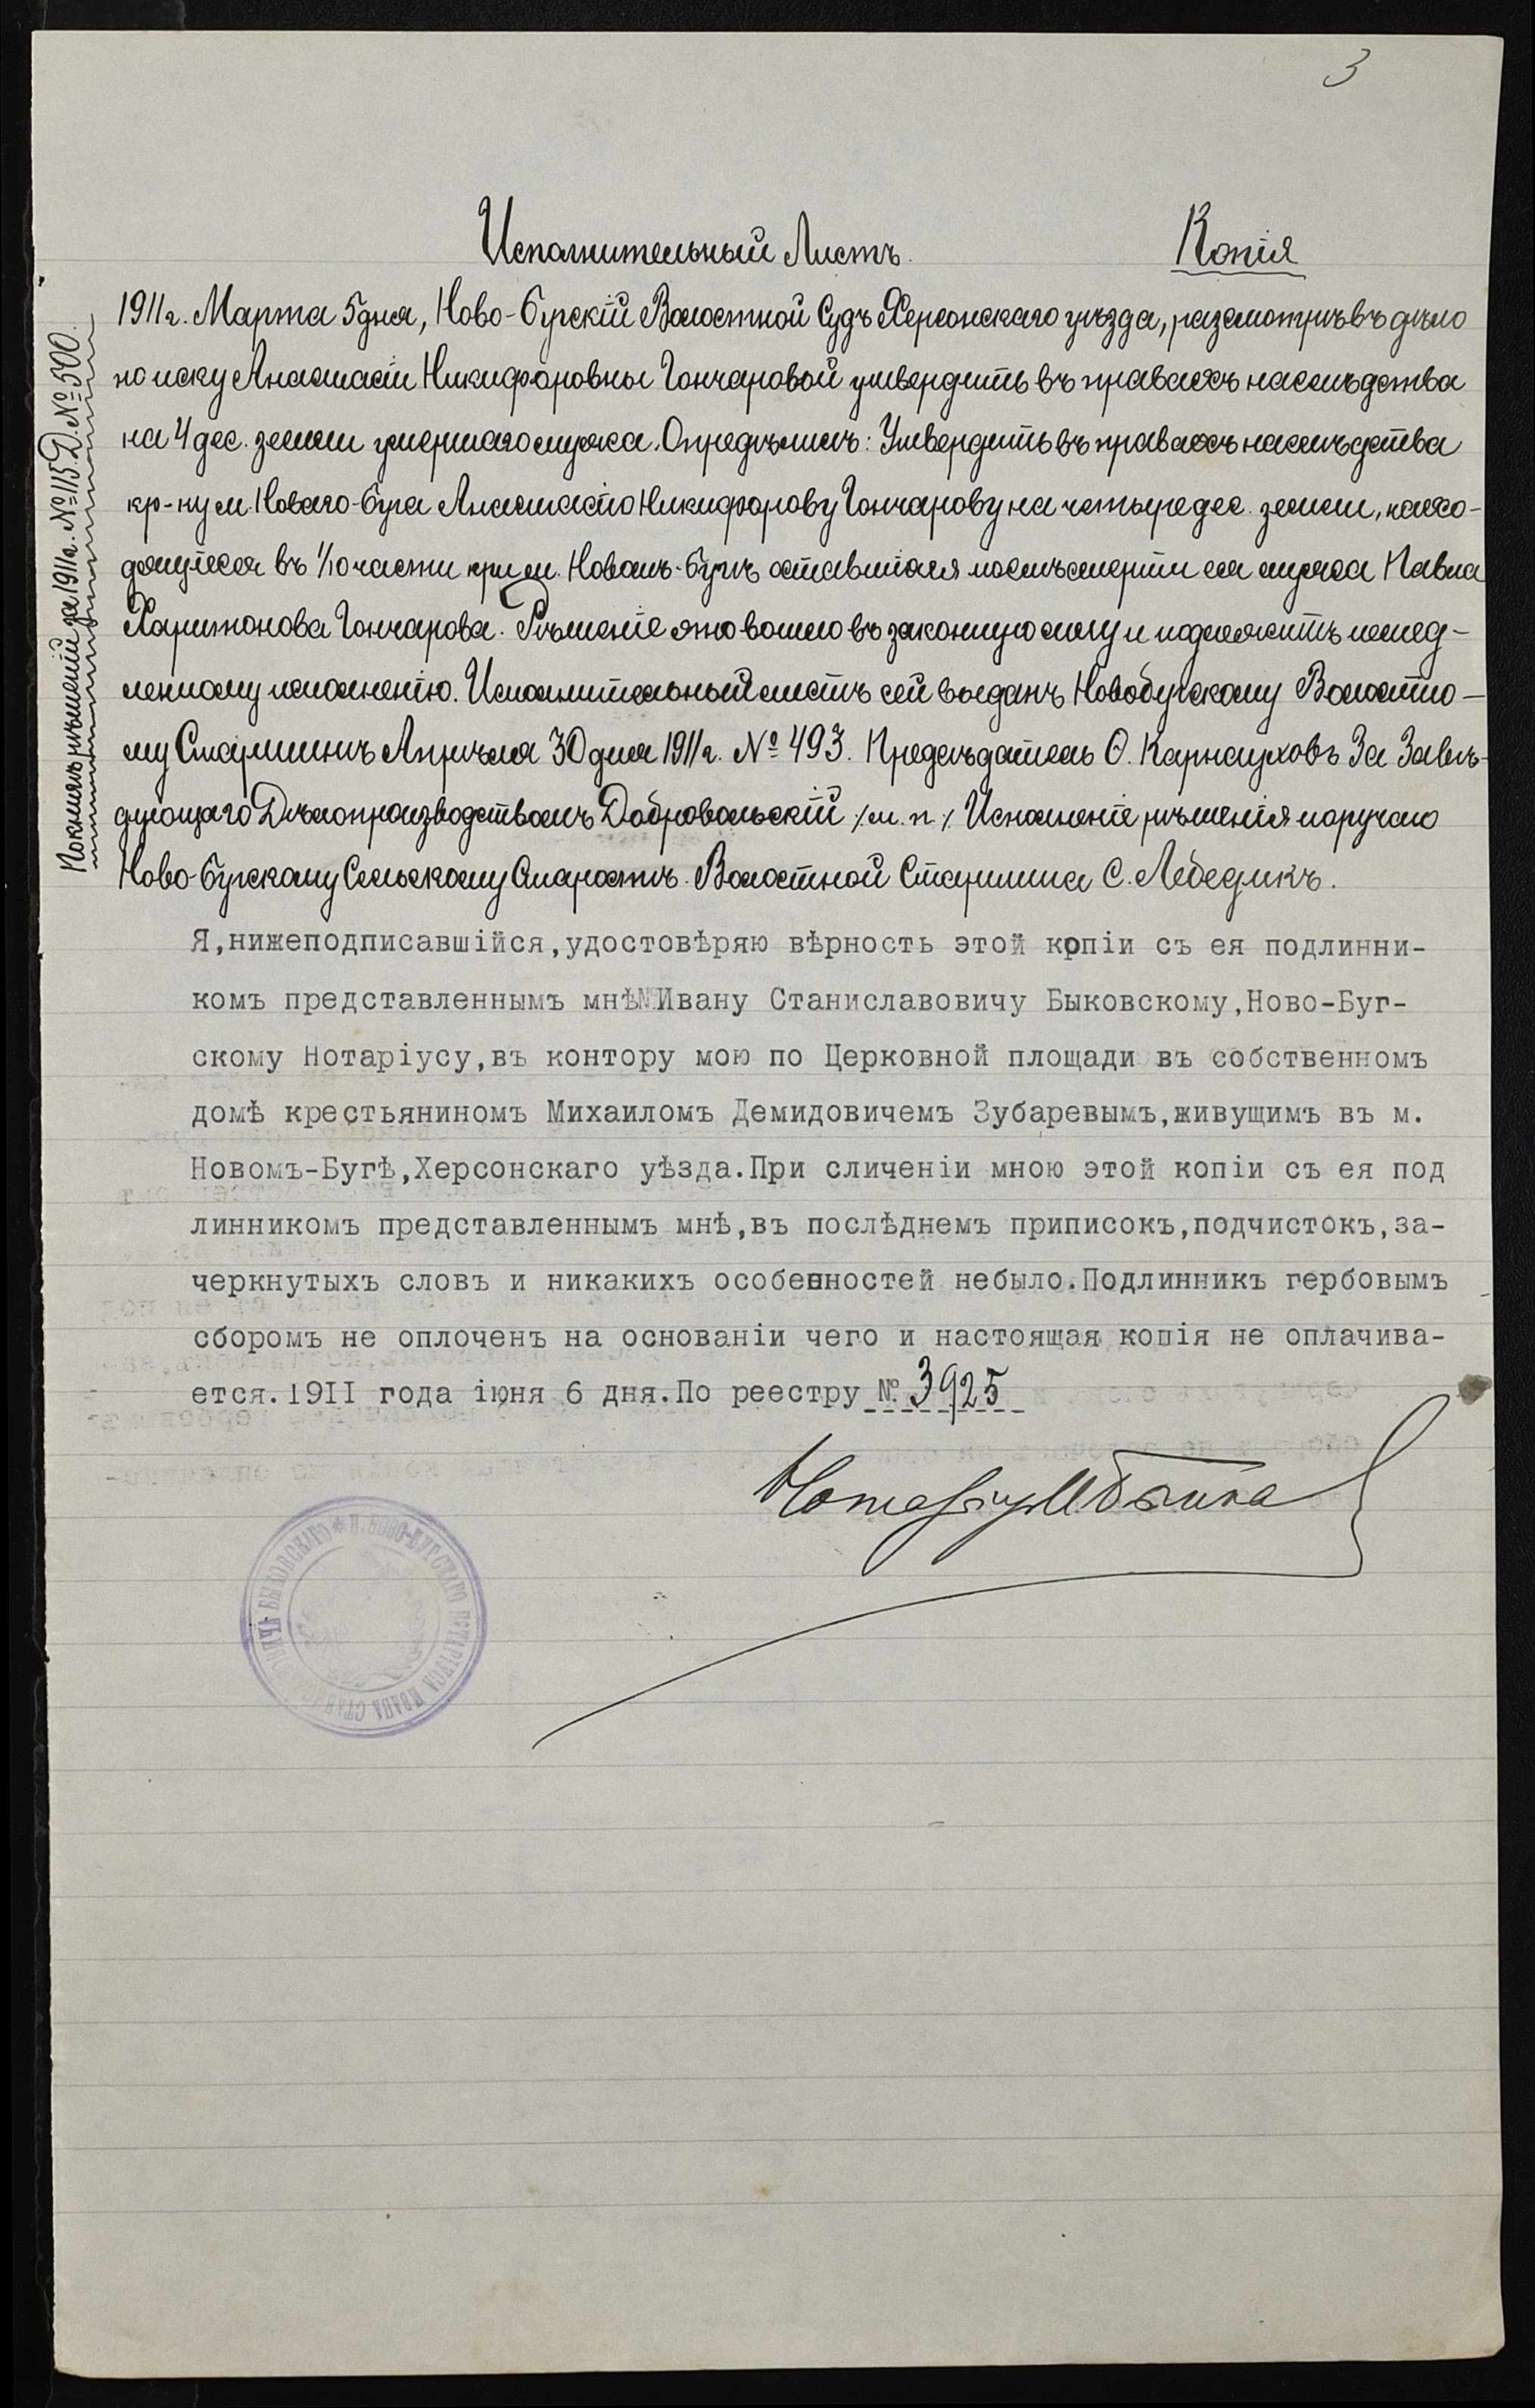 3
Исполнительный Листъ.
Копія
1911 г. Марта 5 дня, Ново-Бугскій Волостной Судъ Херсонскаго уѣзда, разсмотрѣвъ дѣло
по иску Анастасіи Никифоровны Гончаровой утвердить въ правахъ наслѣдства
на 4 дес. земли умершаго мужа. Опредѣлилъ: Утвердить въ правахъ наслѣдства
кр-ку м. Новаго-Буга Анастасію Никифорову Гончарову на четыре дес. земли, нахо-
дящуюся въ 1/10 части при м. Новомъ-Бугѣ оставшіяся послѣ смерти ея мужа Павла
Харитонова Гончарова. Рѣшеніе это вошло въ законную силу и подлежитъ немед-
ленному исполненію. Исполнительный листъ сей выданъ Новобугскому Волостно-
му Старшинѣ Апрѣля 30 дня 1911 г. № 493. Предсѣдатель О. Карнауховъ За Завѣ-
дующаго Дѣлопроизводствомъ Добровольскій /м. п./ Исполненіе рѣшенія поручаю
Ново-Бугскому Сельскому Старостѣ. Волостной Старшина С. Лебедикъ.
По книгѣ рѣшеній за 1911 г. № 115. Д. № 500.
Я,нижеподписавшійся,удостовѣряю вѣрность этой копіи съ ея подлинни-
комъ представленнымъ мнѣ Ивану Станиславовичу Быковскому,Ново-Буг-
скому Нотаріусу,въ контору мою по Церковной площади въ собственномъ
домѣ крестьяниномъ Михаиломъ Демидовичемъ Зубаревымъ,живущимъ въ м.
Новомъ-Бугѣ,Херсонскаго уѣзда.При сличеніи мною этой копіи съ ея под
линникомъ представленнымъ мнѣ,въ послѣднемъ приписокъ,подчистокъ,за-
черкнутыхъ словъ и никакихъ особенностей небыло.Подлинникъ гербовымъ
сборомъ не оплоченъ на основаніи чего и настоящая копія не оплачива-
ется.1911 года іюня 6 дня.По реестру № 3925
Нотаріусъ
* П. НОВО-БУГСКАГО НОТАРІУСА ИВАНА БЫКОВСКАГО